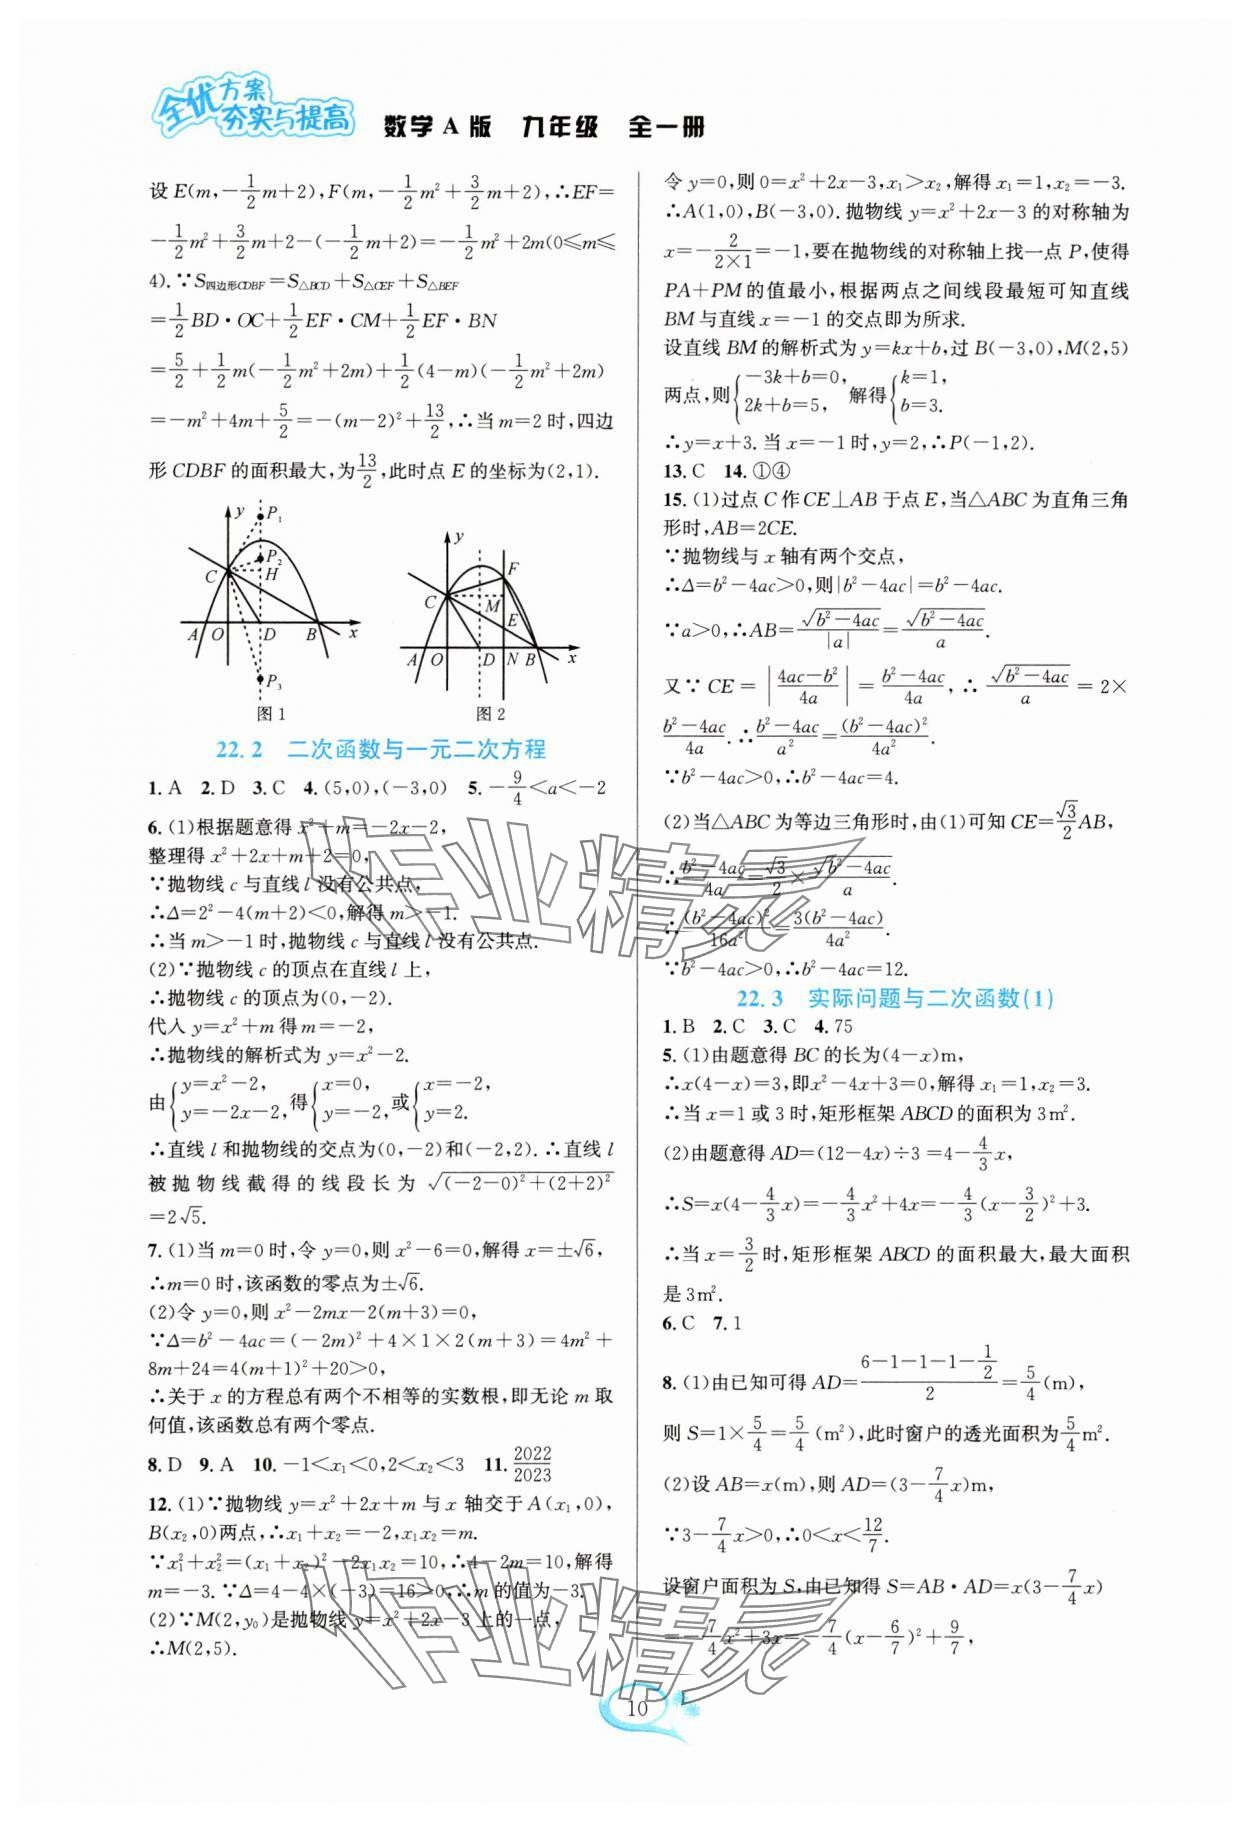 全优方案
夯实与提高
数学A版 九年级 全一册
设E(m,-1/2m+2),F(m,-1/2m²+3/2m+2),∴EF=
-1/2m²+3/2m+2-(-1/2m+2)=-1/2m²+2m(0≤m≤
4).∵S四边形CDBF=S△BCD+S△CEF+S△BEF
=1/2BD·OC+1/2EF·CM+1/2EF·BN
=5/2+1/2m(-1/2m²+2m)+1/2(4-m)(-1/2m²+2m)
=-m²+4m+5/2=-(m-2)²+13/2,∴当m=2时,四边
形CDBF的面积最大,为13/2,此时点E的坐标为(2,1).
y P₁ P₂ C H A O D B x P₃
图1
y F C M E A O D N B x
图2
22.2 二次函数与一元二次方程
1.A 2.D 3.C 4.(5,0),(-3,0) 5.-9/4<a<-2
6.(1)根据题意得x²+m=-2x-2,
整理得x²+2x+m+2=0,
∵抛物线c与直线l没有公共点,
∴Δ=2²-4(m+2)<0,解得m>-1.
∴当m>-1时,抛物线c与直线l没有公共点.
(2)∵抛物线c的顶点在直线l上,
∴抛物线c的顶点为(0,-2).
代入y=x²+m得m=-2.
∴抛物线的解析式为y=x²-2.
由{y=x²-2, y=-2x-2, 得{x=0, y=-2, 或{x=-2, y=2.
∴直线l和抛物线的交点为(0,-2)和(-2,2).∴直线l
被抛物线截得的线段长为√((-2-0)²+(2+2)²)
=2√5.
7.(1)当m=0时,令y=0,则x²-6=0,解得x=±√6,
∴m=0时,该函数的零点为±√6.
(2)令y=0,则x²-2mx-2(m+3)=0,
∵Δ=b²-4ac=(-2m)²+4×1×2(m+3)=4m²+
8m+24=4(m+1)²+20>0,
∴关于x的方程总有两个不相等的实数根,即无论m取
何值,该函数总有两个零点.
8.D 9.A 10.-1<x₁<0,2<x₂<3 11.2022/2023
12.(1)∵抛物线y=x²+2x+m与x轴交于A(x₁,0),
B(x₂,0)两点,∴x₁+x₂=-2,x₁x₂=m.
∵x₁²+x₂²=(x₁+x₂)²-2x₁x₂=10,∴4-2m=10,解得
m=-3.∵Δ=4-4×(-3)=16>0,∴m的值为-3.
(2)∵M(2,y₀)是抛物线y=x²+2x-3上的一点,
∴M(2,5).
令y=0,则0=x²+2x-3,x₁>x₂,解得x₁=1,x₂=-3.
∴A(1,0),B(-3,0).抛物线y=x²+2x-3的对称轴为
x=-2/(2×1)=-1,要在抛物线的对称轴上找一点P,使得
PA+PM的值最小,根据两点之间线段最短可知直线
BM与直线x=-1的交点即为所求.
设直线BM的解析式为y=kx+b,过B(-3,0),M(2,5)
两点,则{-3k+b=0, 2k+b=5, 解得{k=1, b=3.
∴y=x+3.当x=-1时,y=2,∴P(-1,2).
13.C 14.①④
15.(1)过点C作CE⊥AB于点E,当△ABC为直角三角
形时,AB=2CE.
∵抛物线与x轴有两个交点,
∴Δ=b²-4ac>0,则|b²-4ac|=b²-4ac.
∵a>0,∴AB=√(b²-4ac)/|a|=√(b²-4ac)/a.
又∵CE=|(4ac-b²)/4a|=(b²-4ac)/4a,∴√(b²-4ac)/a=2×
(b²-4ac)/4a.∴(b²-4ac)/a²=(b²-4ac)²/4a².
∵b²-4ac>0,∴b²-4ac=4.
(2)当△ABC为等边三角形时,由(1)可知CE=√3/2AB,
∴(b²-4ac)/4a=√3/2×√(b²-4ac)/a.
∴(b²-4ac)²/16a²=3(b²-4ac)/4a².
∵b²-4ac>0,∴b²-4ac=12.
22.3 实际问题与二次函数(1)
1.B 2.C 3.C 4.75
5.(1)由题意得BC的长为(4-x)m,
∴x(4-x)=3,即x²-4x+3=0,解得x₁=1,x₂=3.
∴当x=1或3时,矩形框架ABCD的面积为3m².
(2)由题意得AD=(12-4x)÷3=4-4/3x,
∴S=x(4-4/3x)=-4/3x²+4x=-4/3(x-3/2)²+3.
∴当x=3/2时,矩形框架ABCD的面积最大,最大面积
是3m².
6.C 7.1
8.(1)由已知可得AD=(6-1-1-1-1/2)/2=5/4(m),
则S=1×5/4=5/4(m²),此时窗户的透光面积为5/4m².
(2)设AB=x(m),则AD=(3-7/4x)m.
∵3-7/4x>0,∴0<x<12/7.
设窗户面积为S,由已知得S=AB·AD=x(3-7/4x)
=-7/4x²+3x=-7/4(x-6/7)²+9/7,
作业精灵
作业精灵
10